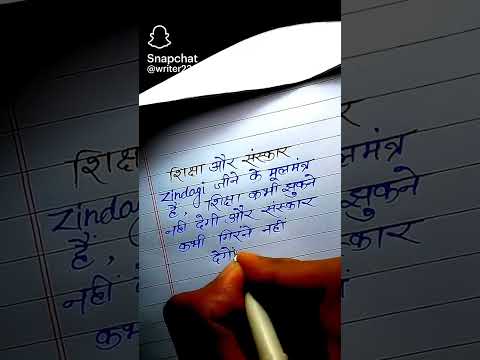 Snapchat
@writer22
शिक्षा और संस्कार
zindagi जीने के मूलमंत्र
हैं, शिक्षा कभी झुकने
नहीं देगी और संस्कार
कभी गिरने नहीं
देगें